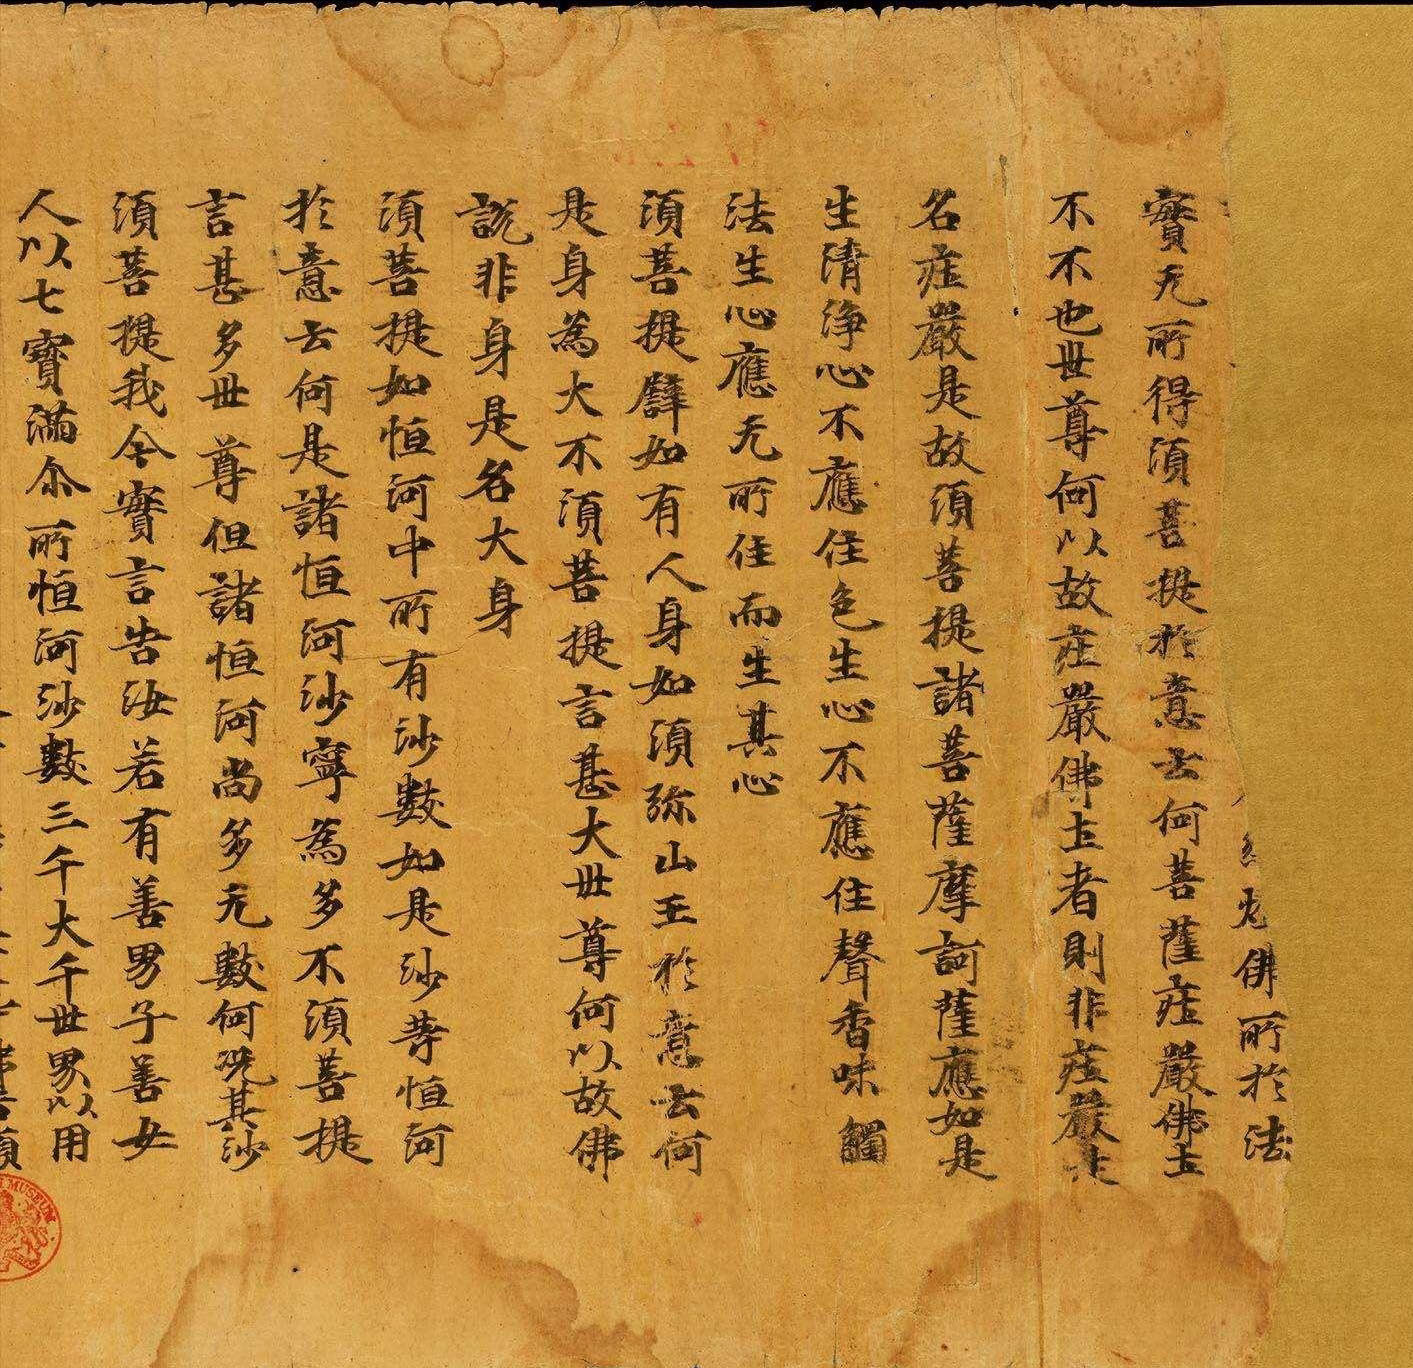 佛所於法
實无所得須菩提於意云何菩薩㽵嚴佛土
不不也世尊何以故㽵嚴佛土者則非㽵嚴是
名㽵嚴是故須菩提諸菩薩摩訶薩應如是
生清淨心不應住色生心不應住聲香味觸
法生心應无所住而生其心
須菩提譬如有人身如須弥山王於意云何
是身為大不須菩提言甚大世尊何以故佛
說非身是名大身
須菩提如恒河中所有沙數如是沙等恒河
於意云何是諸恒河沙寧為多不須菩提
言甚多世尊但諸恒河尚多无數何況其沙
須菩提我今實言告汝若有善男子善女
人以七寶滿尒所恒河沙數三千大千世界以用
MUSEUM